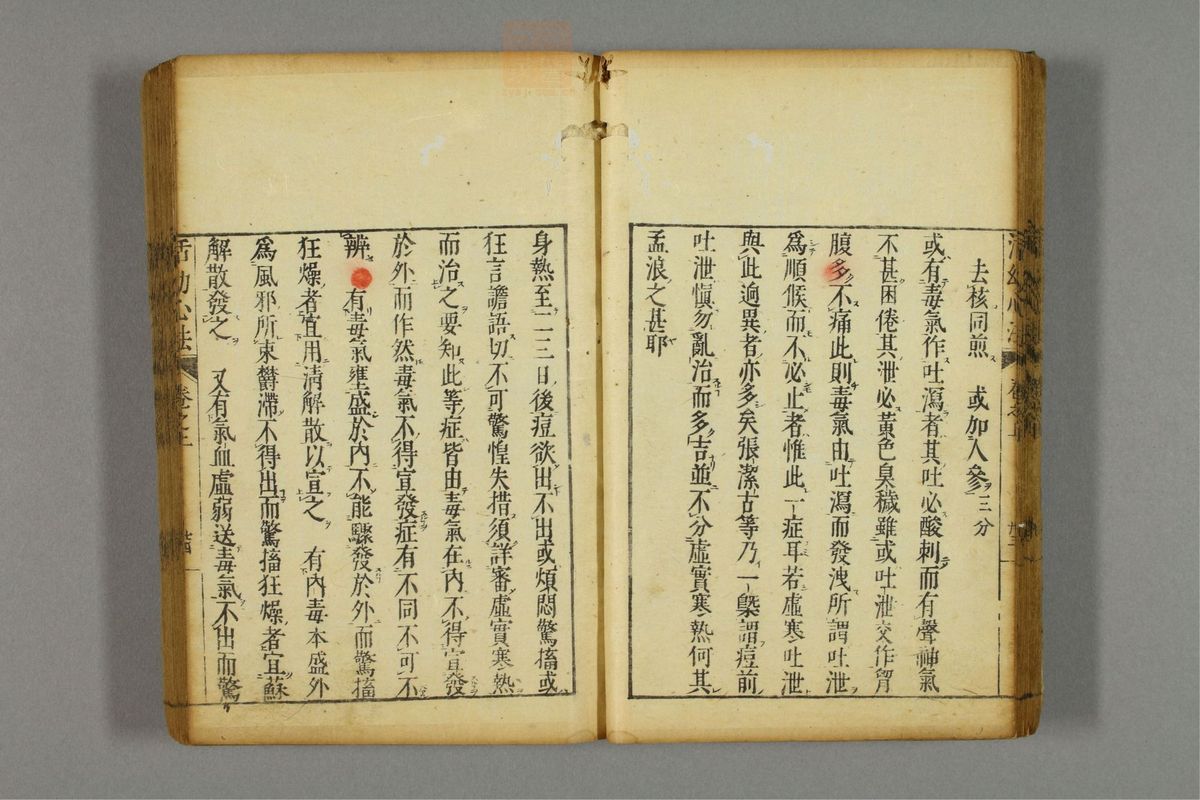 去核同煎　或加人參三分
或有毒氣作吐瀉者其吐必酸刺而有聲神氣
不甚困倦其泄必黃色臭穢雖或吐泄交作胷
腹多不痛此則毒氣由吐瀉而發洩所謂吐泄
爲順候而不必止者惟此一症耳若虛寒吐泄
與此逈異者亦多矣張潔古等乃一槩謂痘前
吐泄愼勿亂治而多吉並不分虛實寒熱何其
孟浪之甚耶
身熱至二三日後痘欲出不出或煩悶驚搐或
狂言譫語切不可驚惶失措須詳審虛實寒熱
而治之要知此等症皆由毒氣在內不得宣發
於外而作然毒氣不得宣發症有不同不可不
辨　有毒氣壅盛於內不能驟發於外而驚搐
狂燥者宜用淸解散以宣之　有內毒本盛外
爲風邪所束欝滯不得出而驚搐狂燥者宜蘇
解散發之　又有氣血虛弱送毒氣不出而驚
活幼心法　卷之上　廿四